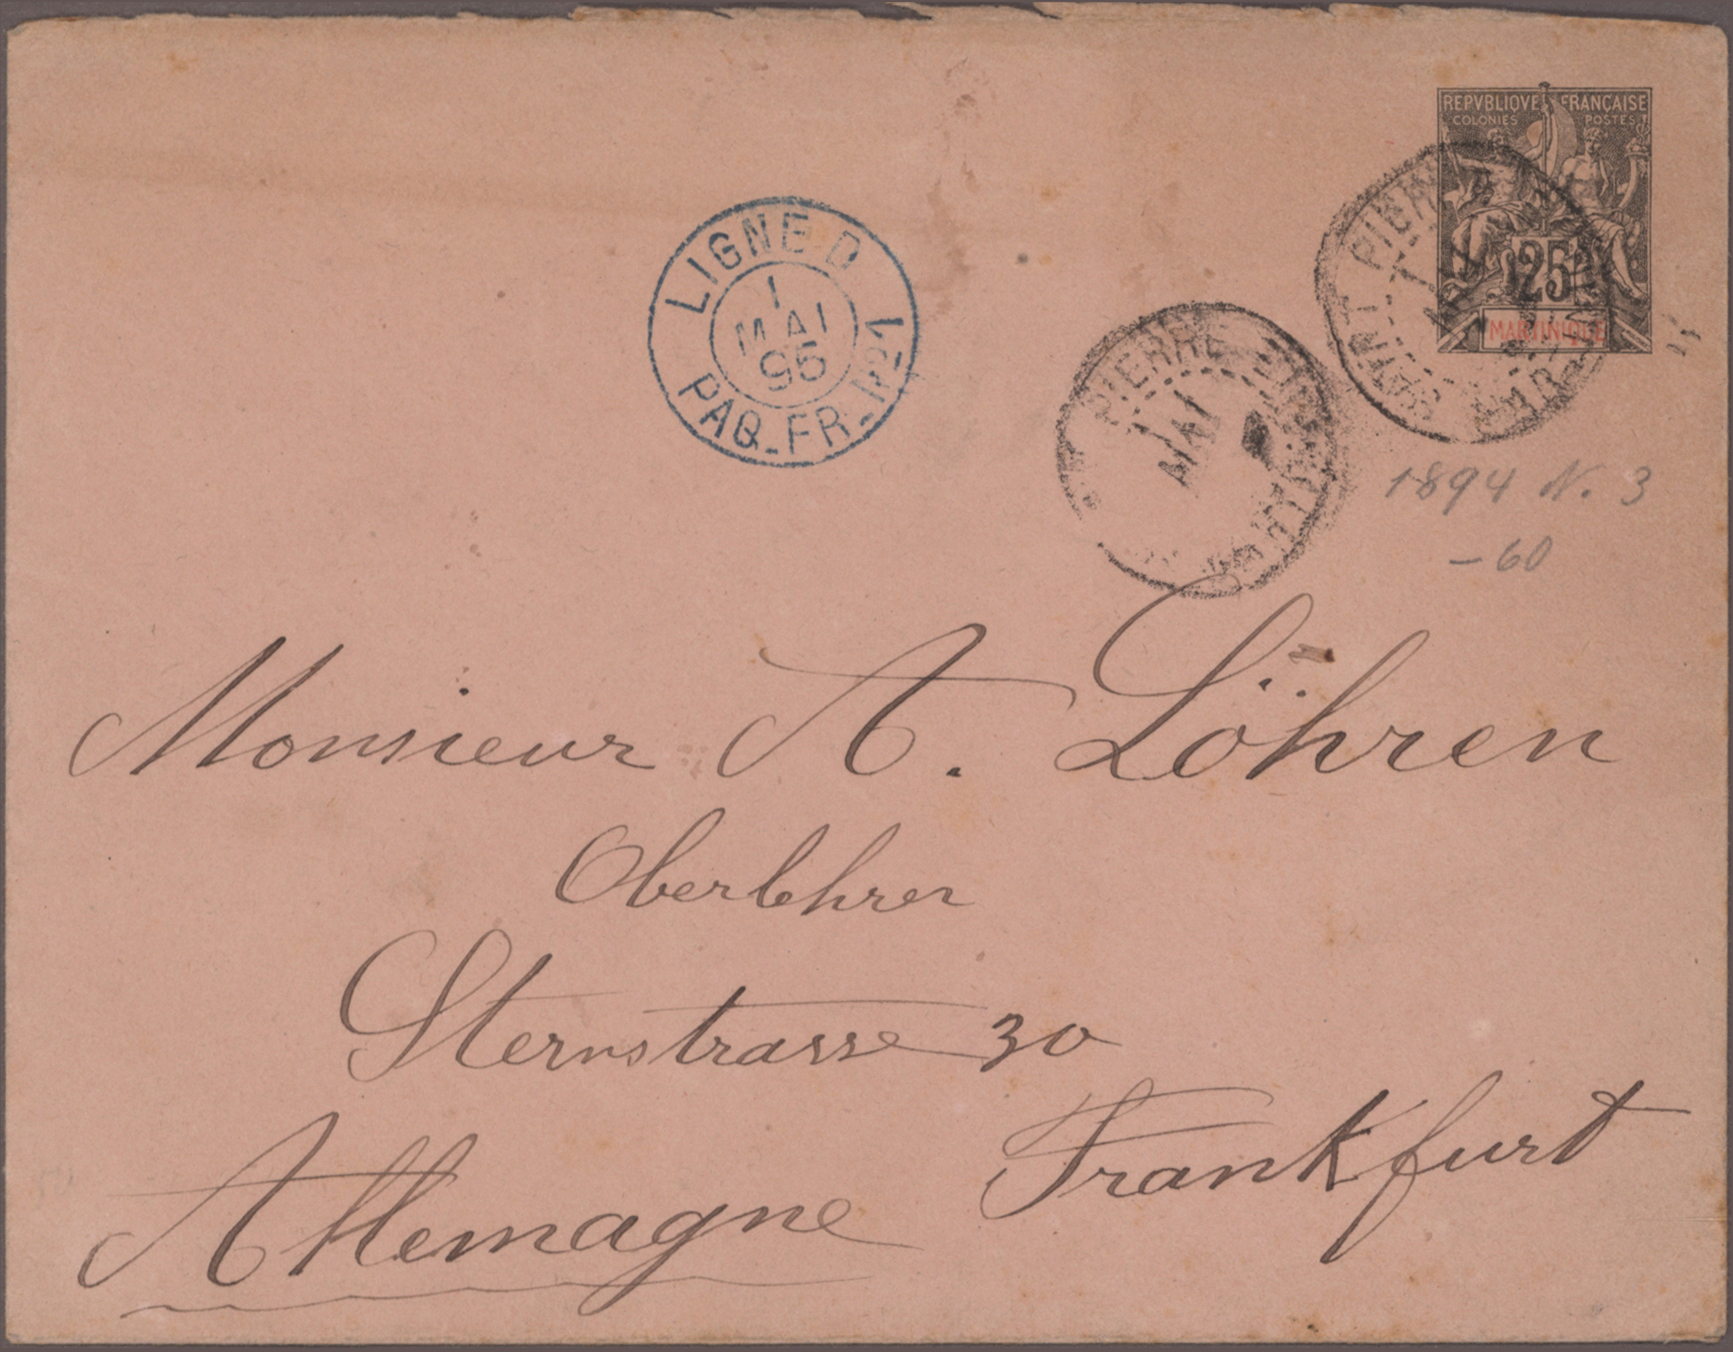 REPVBLIQVE FRANÇAISE
COLONIES POSTES
25
MARTINIQUE
LIGNE D
1
MAI
95
PAQ. FR. Nº1
SAINT PIERRE
PIERRE
1
MAI
1894 N. 3
-60
Monsieur A. Löhren
Oberlehrer
Sternstrasse 30
Frankfurt
Allemagne